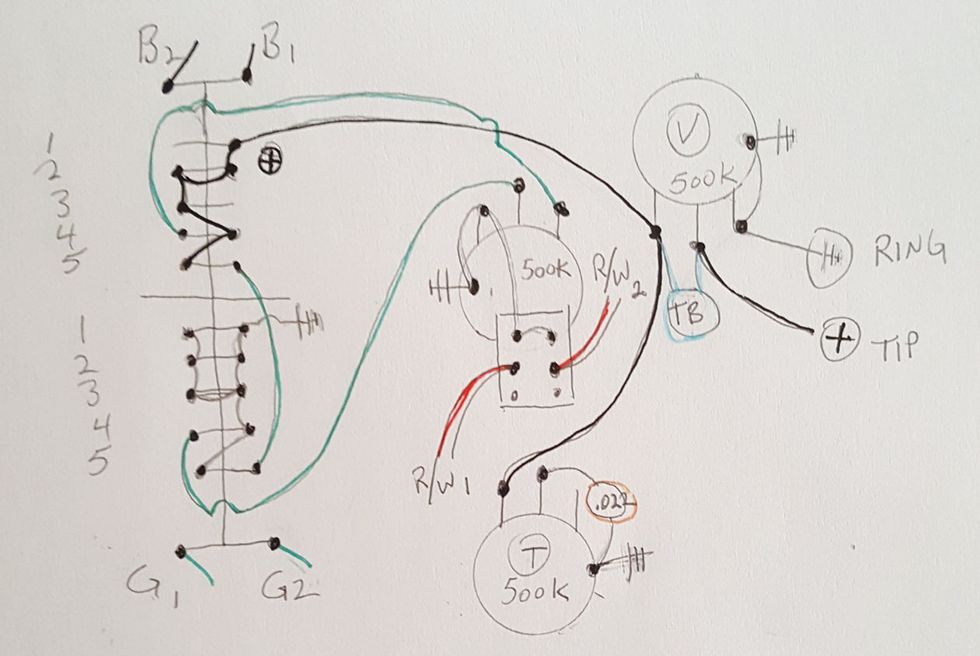 B2 B1
1
2
3
4
5
+
V
500K
RING
TB
+ TIP
500K
R/W2
R/W1
1
2
3
4
5
.022
T
500K
G1 G2